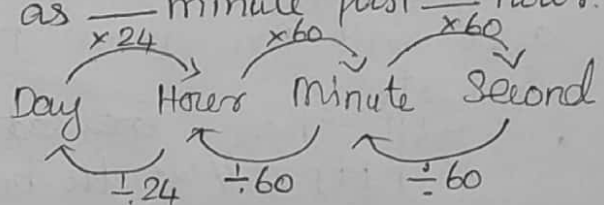 as ___ minute past ___ hour.
×24 ×60 ×60
Day Hour Minute Second
÷24 ÷60 ÷60